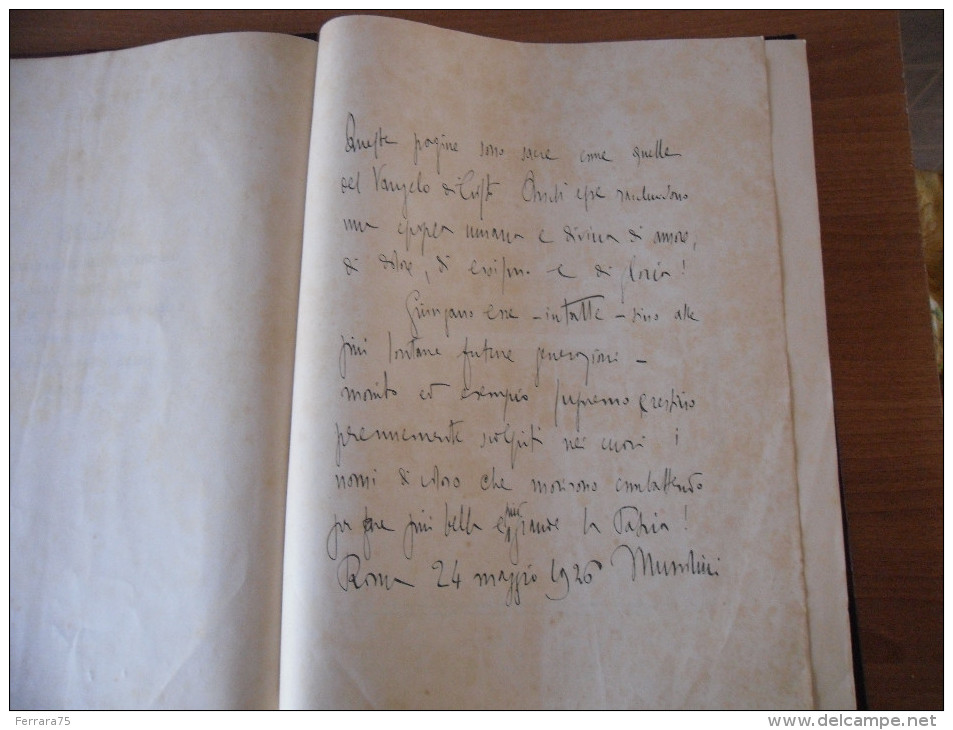 Queste pagine sono sacre come quelle
del Vangelo di Cristo. Anch'esse racchiudono
una epopea umana e divina di amore,
di dolore, di eroismo e di gloria!
Giungano esse - intatte - sino alle
più lontane future generazioni -
monito ed esempio supremo e restino
perennemente scolpiti nei cuori i
nomi di coloro che morirono combattendo
per fare più bella e più grande la Patria!
Roma 24 maggio 1926 Mussolini
Ferrara75
http://www.delcampe.net